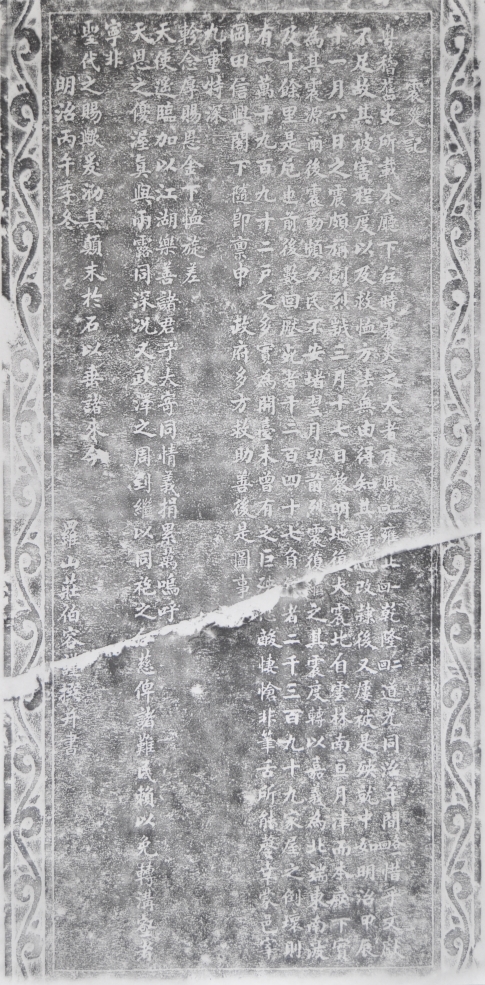 震災記
粵稽舊史所載本廳下往時震災之大者康熙二雍正一乾隆四道光同治年間惜乎文獻
不足故其被害程度以及救恤方法無由得知其詳改隸後又屢被是殃就中如明治甲辰
十一月六日之震頗稱劇烈哉三月十七日黎明地復大震北自雲林南亘月津而本廳下實
為其震源兩後震動頻力民不安堵翌月望前烈震復繼之其震度轉以嘉義為北端東南波
及十餘里是厄也前後數回壓死者千二百四十七負者二千三百九十九家屋之倒壞則
有一萬千九百九十二戶之多實為開臺未曾有之巨酸悽愴非筆舌所能罄葉家邑宰
岡田信興閣下隨即稟申 政府多方救助善後是圖事
九重特深
軫念辱賜恩金下恤旋差
天使遙臨加以江湖樂善諸君子太寄同情義捐累萬嗚呼
天恩之優渥真與雨露同深況又政澤之周到繼以同袍之慈俾諸難民賴以免轉溝壑者
寧非
聖代之賜歟爰泐其顛末於石以垂諸來今
明治丙午季冬 羅山莊伯容撰并書